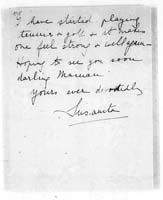 I have started playing
tennis & golf & it makes
one feel strong & well again
Hoping to see you soon
darling Maman
Yours ever devotedly
Susanita